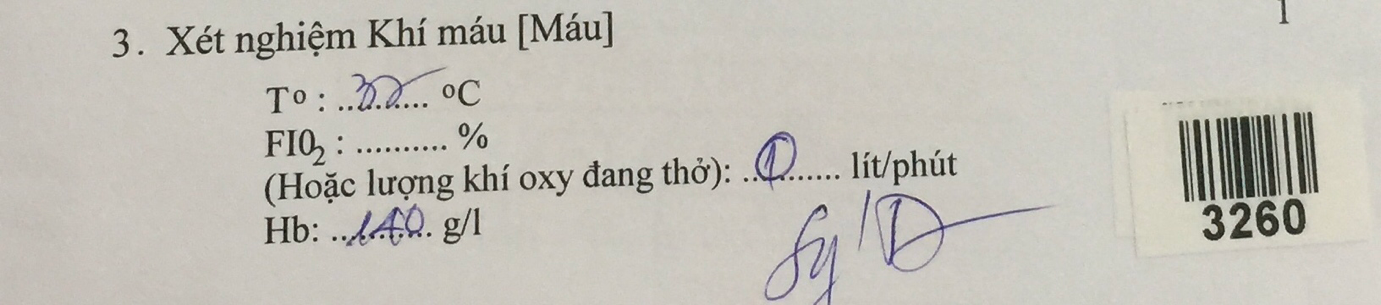 1
3. Xét nghiệm Khí máu [Máu]
Tº : .......... ºC
FI0₂ : .......... %
(Hoặc lượng khí oxy đang thở): .......... lít/phút
Hb: ..140.. g/l
3260